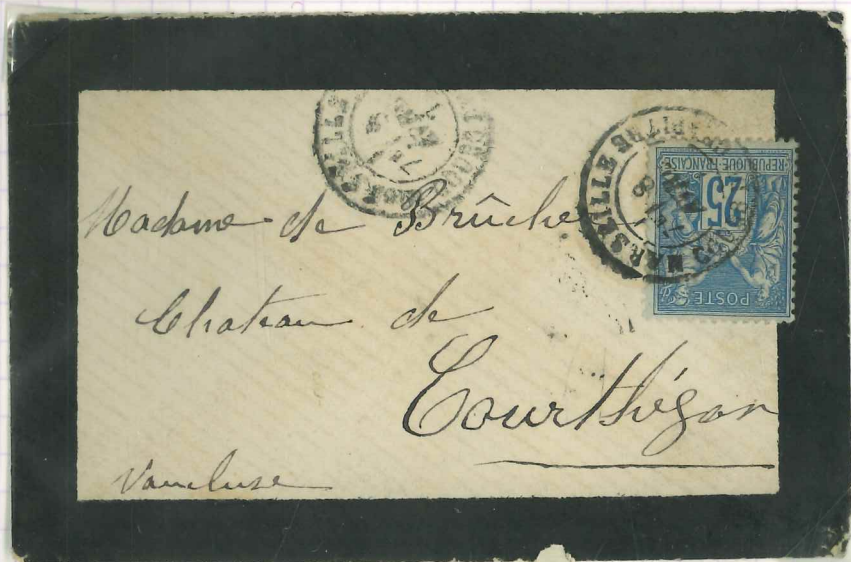 MARSEILLE
REPUBLIQUE FRANCAISE
25
POSTES
Madame de Brûche
Chateau de
Courthézon
Vaucluse